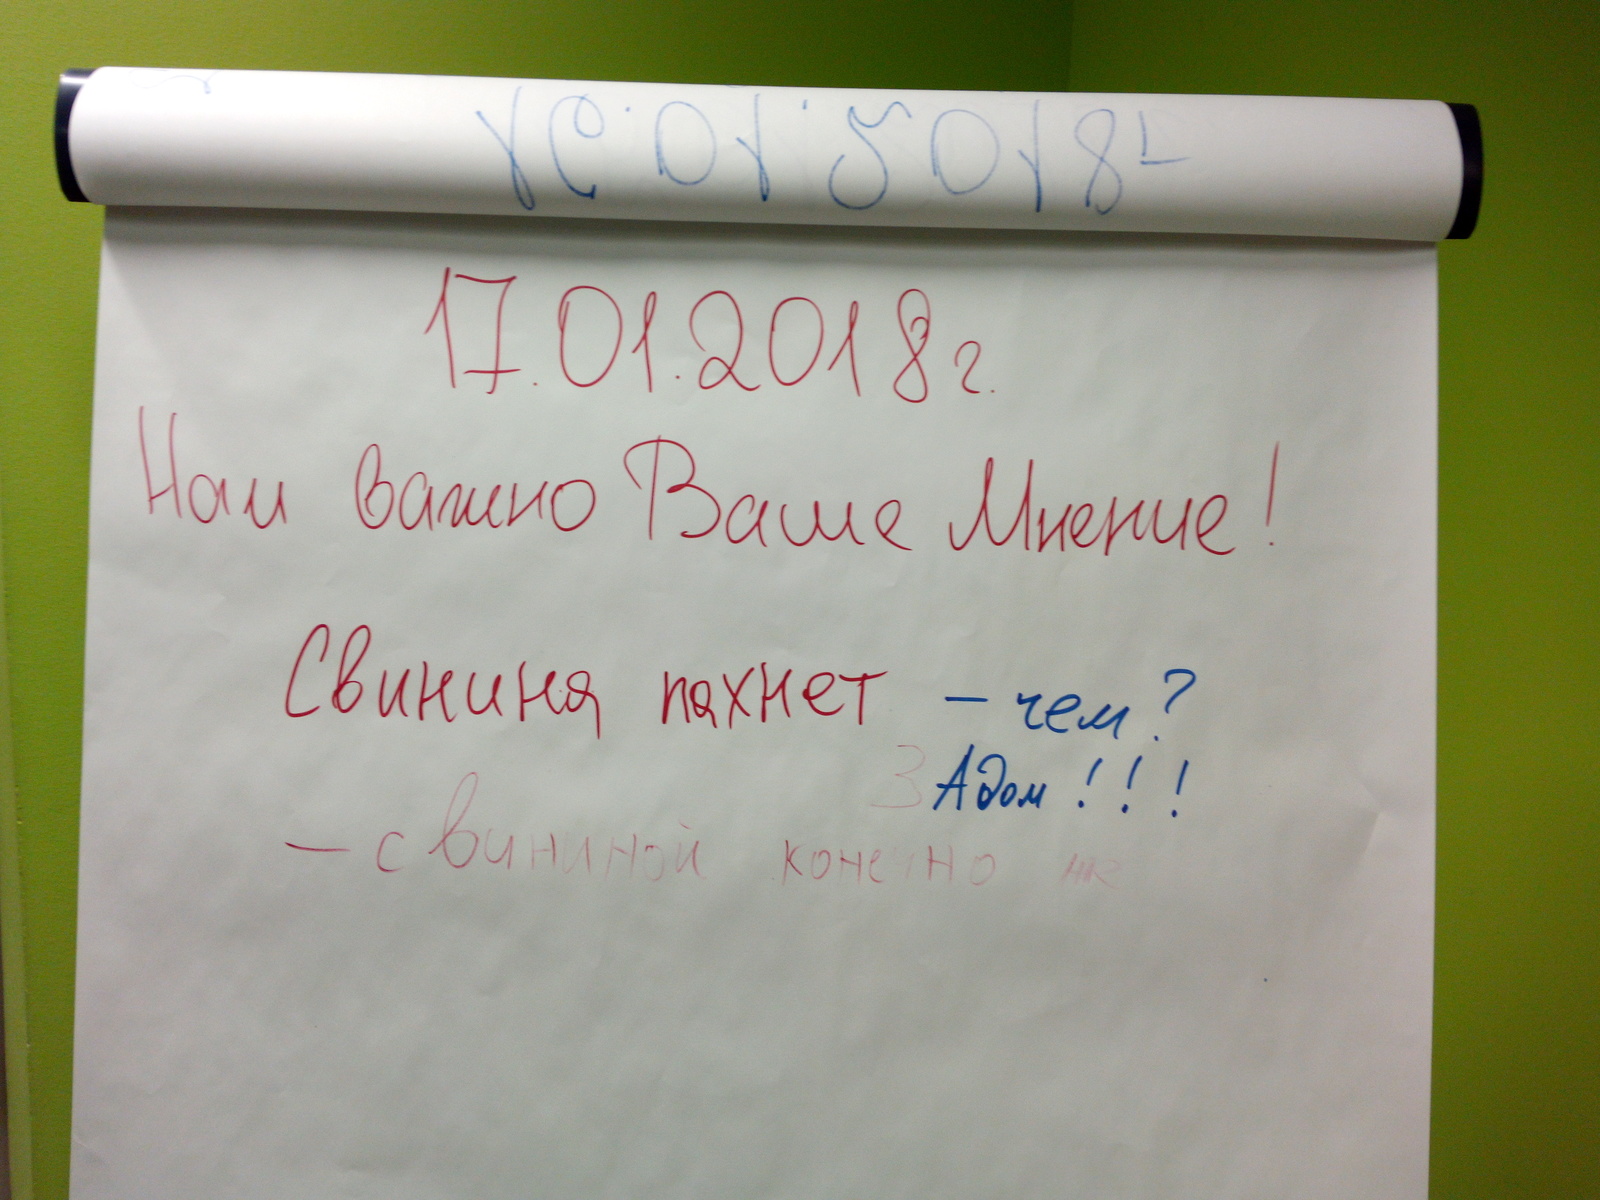 17.01.2018г.
Нам важно Ваше Мнение!
Свинина пахнет – чем?
ЗАдом!!!
– свининой конечно же